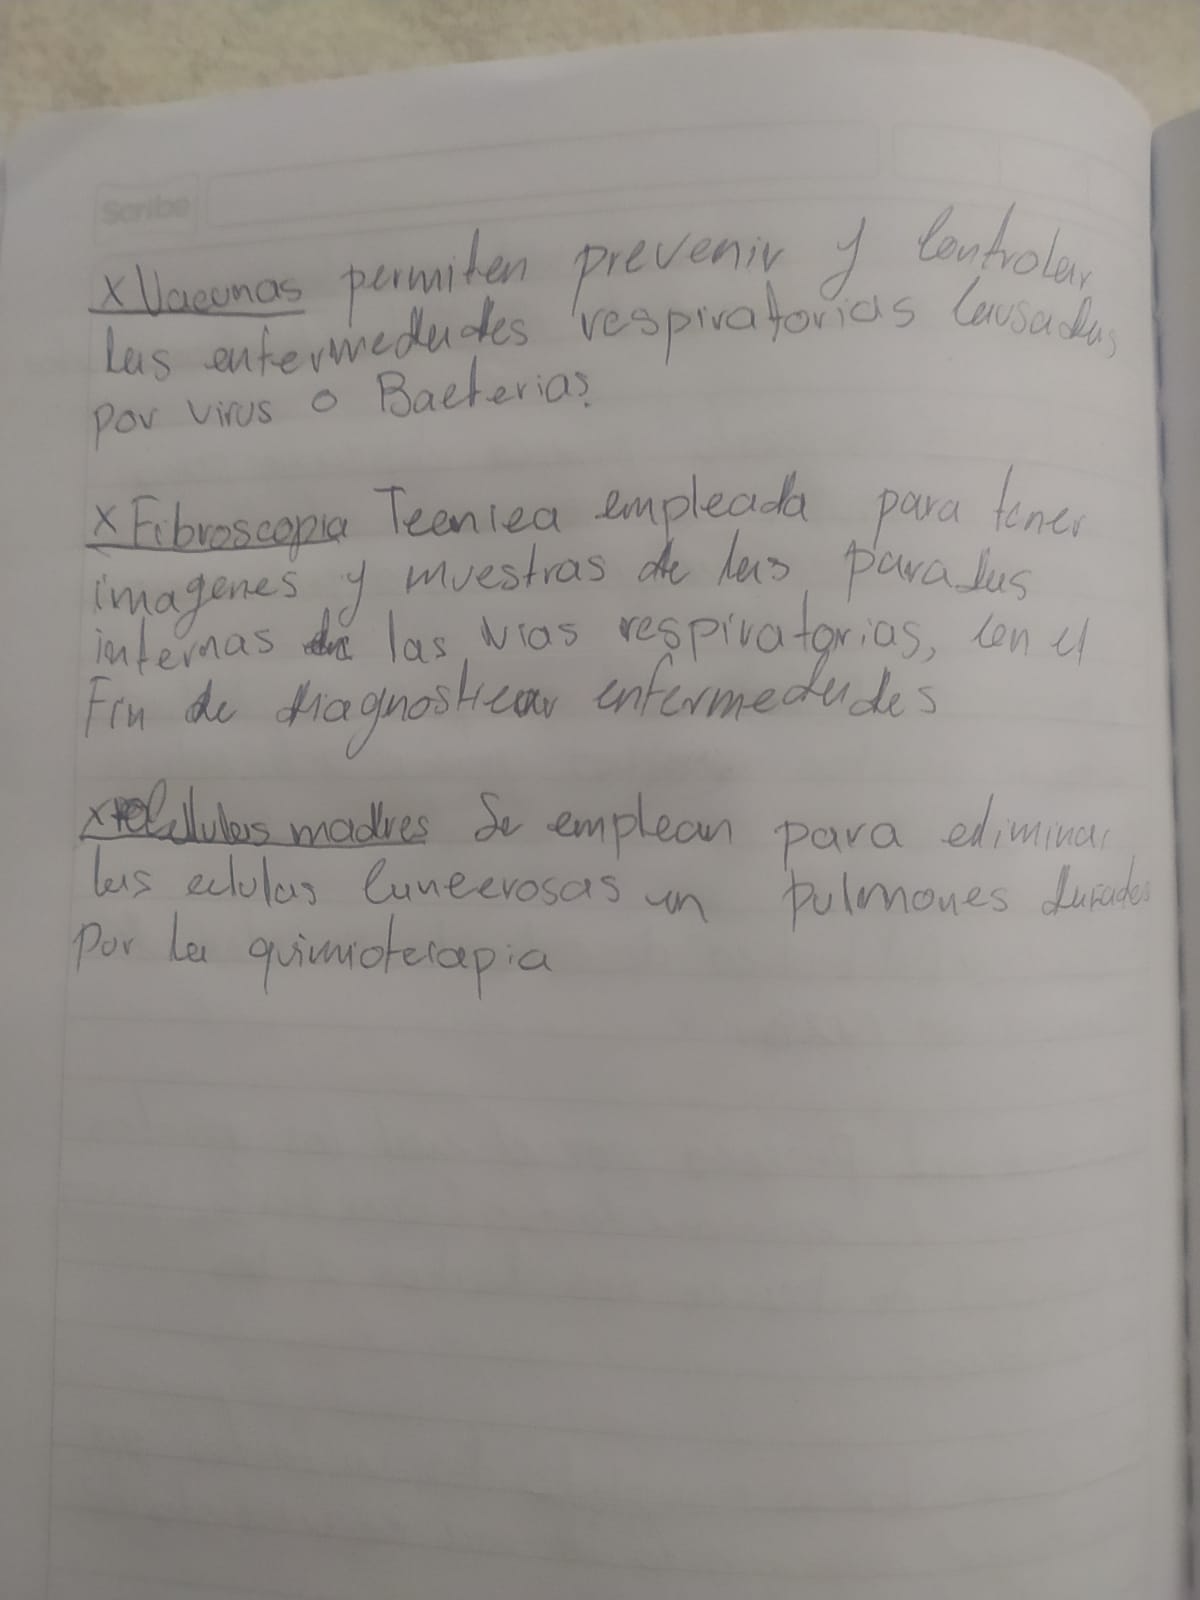 Scribe
x Vacunas permiten prevenir y Controlar
las enfermedades respiratorias Causadas
por virus o Bacterias.
x Fibroscopia Tecnica empleada para tener
imagenes y muestras de las paradas
internas de las vias respiratorias, con el
Fin de diagnosticar enfermedades
x Celulas madres Se emplean para eliminar
las celulas Cancerosas en pulmones
por la quimioterapia